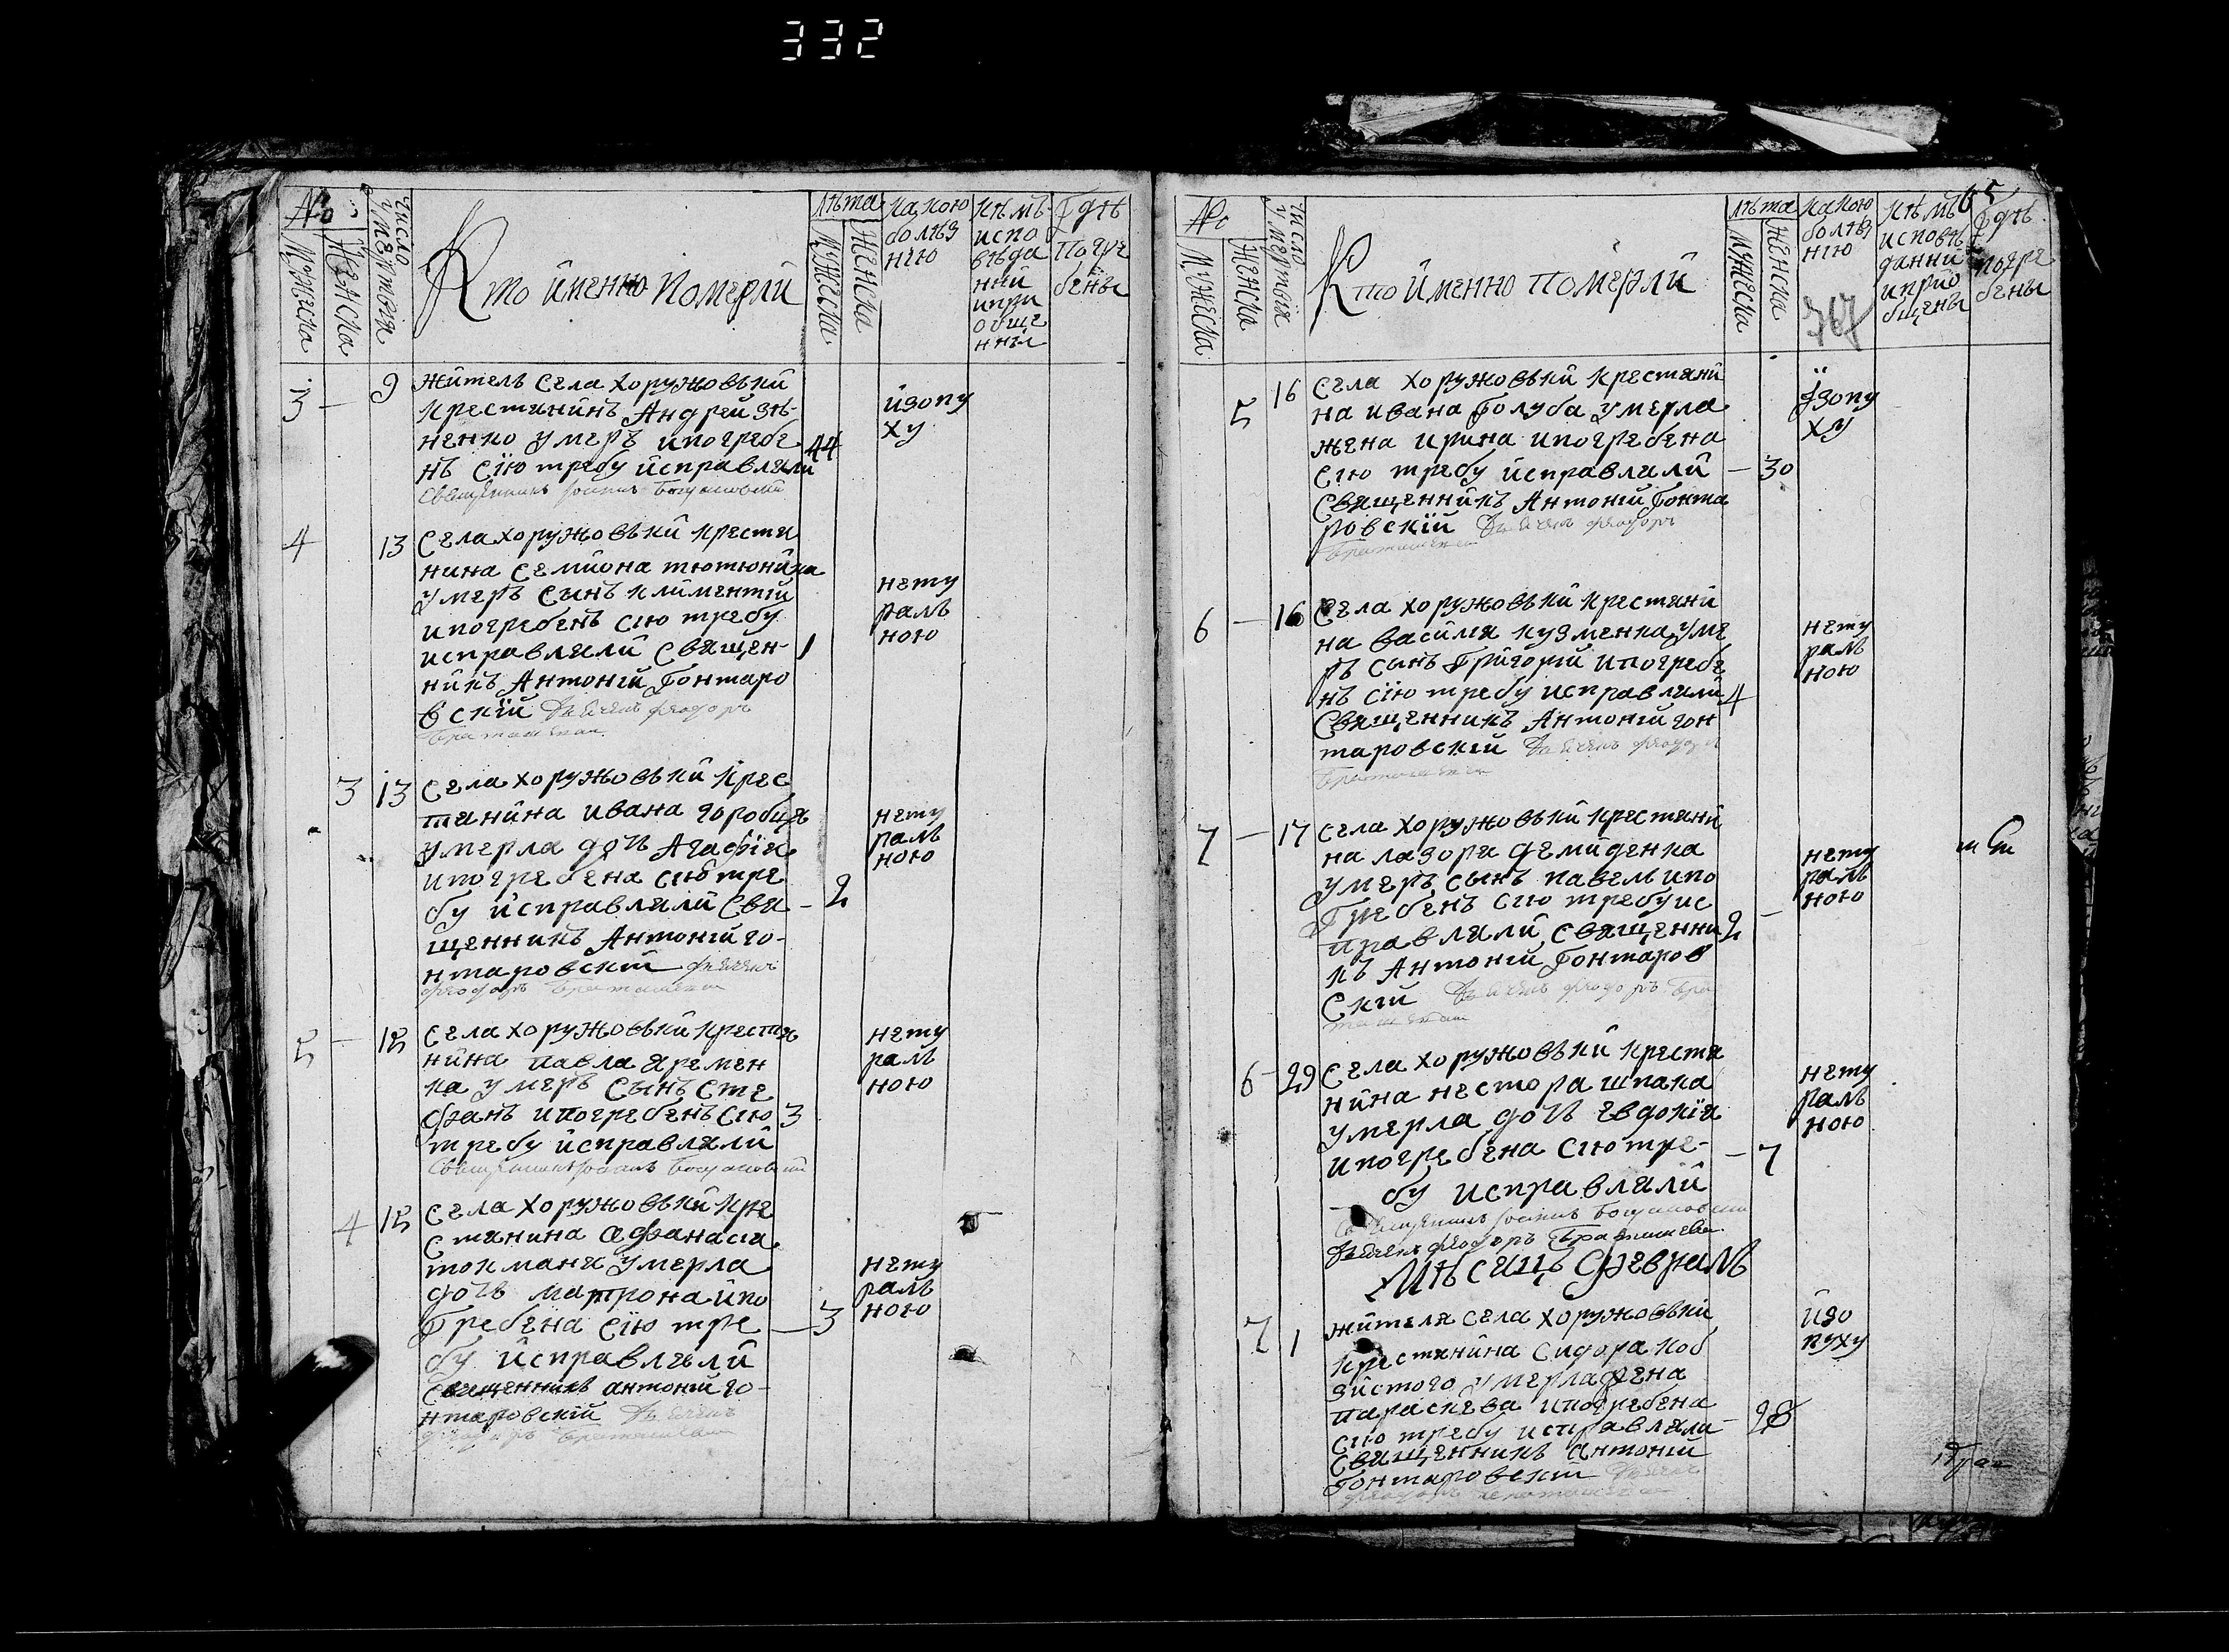 332
№
Мужеска
Женска
число умертвія
Кто именно померли
лѣта
Мужеска
Женска
какою
болѣз
нею
кѣмъ
испо
вѣда
нни
и при
обще
нны
Гдѣ
погре
бены
3 — 9 житель села хоружовъки
крестянинъ Андрей
ненко умеръ и погребе 44
нъ сїю требу исправляли
изопу
ху
4 13 села хоружовъки крестя
нина семиона тютюника
умеръ сынъ климентій
и погребенъ сію требу
исправляли священ- 1
никъ Антоній Гонтаро
вскій Дьячекъ феодоръ
нету
раль
ною
3 13 села хоружовъки крес
тянина ивана горобця
умерла дочь Агафія
и погребена сію тре
бу исправляли Свя — 2
щенникъ Антоній го-
нтаровскій дьячекъ
феодоръ
нету
раль
ною
5 — 15 села хоружовъки крестя
нина павла яремен
ка умеръ сынъ сте
фанъ и погребенъ сію 3
требу исправляли
нету
раль
ною
4 15 села хоружовъки кре
стянина афанасія
токманя умерла
дочь матрона и по
Гребена сїю тре — 3
бу исправляли
священникъ антоній го-
нтаровскій Дьячекъ
феодоръ
нету
раль
ною
65
№
Мужеска
Женска
число умертвія
Кто именно померли
лѣта
мужеска
женска
какою
болѣз
нію
кѣмъ
исповѣ
данни
и прио
бщены
Гдѣ
погре
бены
5 16 села хоружовъки крестяни
на ивана Голуба умерла
жена ирина и погребена
сію требу исправляли — 30
священникъ Антоній Гонта
ровскій Дьячекъ феодоръ
изопу
ху
6 — 16 села хоружовъки крестяни
на василя кузменка уме
ръ сынъ Григорій и погребе
нъ сїю требу исправляли 4
священникъ Антоній гон
таровскій Дьячекъ феодоръ
нету
раль
ною
7 — 17 села хоружовъки крестяни
на лазора демиденка
умеръ сынъ павелъ и по
Гребенъ сію требу ис
правляли священни 2 —
къ Антоній Гонтаров
скій Дьячекъ феодоръ
нету
раль
ною
6 — 29 села хоружовъки крестя
нина нестора шпака
умерла дочь евдокїя
и погребена сію тре- — 7
бу исправляли
Дьячекъ феодоръ
нету
раль
ною
Мѣсяцъ февраль
7 1 жителя села хоружовъки
крестянина сидора коб
зистого умерла жена
параскева и погребена
сію требу исправляли — 28
священникъ антоній
Гонтаровскій Дьячекъ
изо
пуху